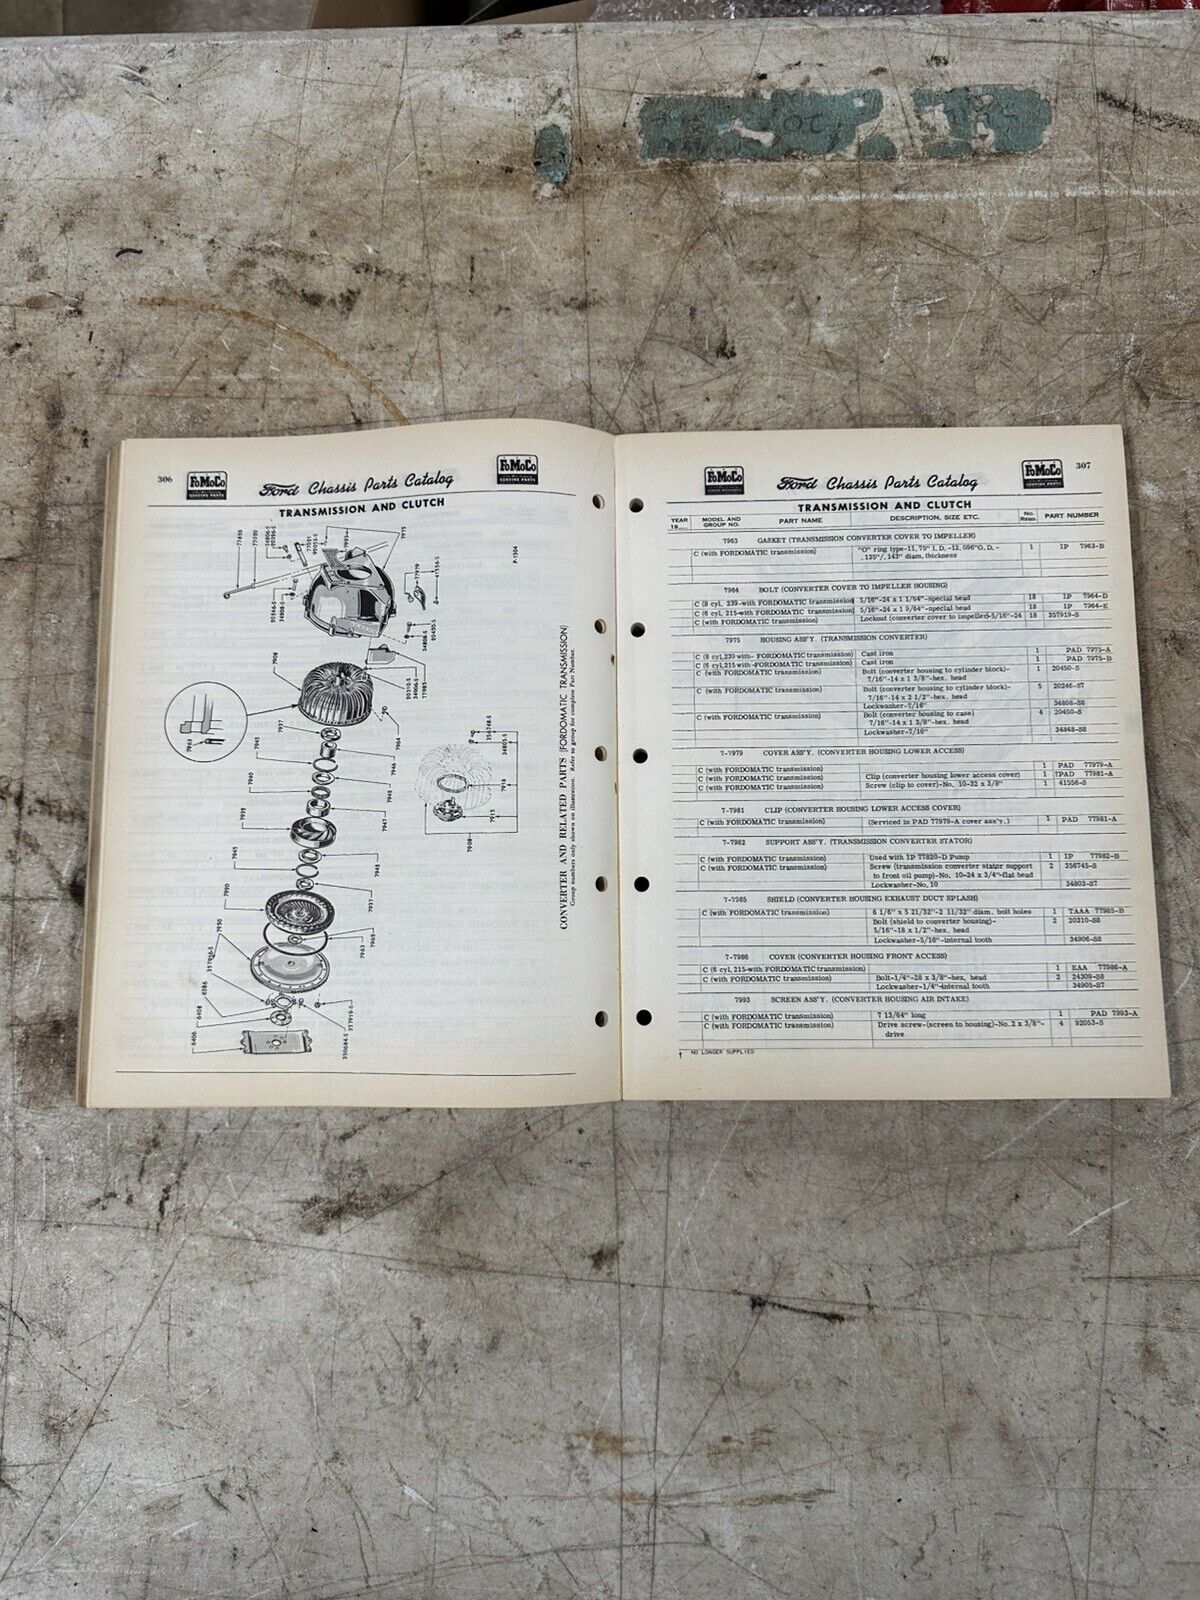 306
FoMoCo
GENUINE PARTS
Ford Chassis Parts Catalog
FoMoCo
GENUINE PARTS
TRANSMISSION AND CLUTCH
7975
7993
77979
41556-S
P-1504
7908
7937
7945
7964
7946
7940
7948
7939
7947
7945
7948
7900
7937
7962
7950
7963
357956-S
6386
6408
6406
357919-S
350684-S
7961
20310-S
34906-S
77985
356748-S
34803-S
7910
7915
7908
CONVERTER AND RELATED PARTS (FORDOMATIC TRANSMISSION)
Group numbers only shown on illustration. Refer to group for complete Part Number.
FoMoCo
Ford Chassis Parts Catalog
FoMoCo
GENUINE PARTS
307
TRANSMISSION AND CLUTCH
YEAR 19 MODEL AND GROUP NO. PART NAME DESCRIPTION, SIZE ETC. No. Reqd PART NUMBER
7963 GASKET (TRANSMISSION CONVERTER COVER TO IMPELLER)
C (with FORDOMATIC transmission) "O" ring type-11.75" I.D.-12.096"O.D.- 1 1P 7963-B
.135"/.143" diam. thickness
7964 BOLT (CONVERTER COVER TO IMPELLER HOUSING)
C (8 cyl. 239-with FORDOMATIC transmission) 5/16"-24 x 1 1/64"-special head 18 1P 7964-D
C (6 cyl. 215-with FORDOMATIC transmission) 5/16"-24 x 1 9/64"-special head 18 1P 7964-E
C (with FORDOMATIC transmission) Locknut (converter cover to impeller)-5/16"-24 18 357919-S
7975 HOUSING ASS'Y. (TRANSMISSION CONVERTER)
C (8 cyl.239 with- FORDOMATIC transmission) Cast iron 1 PAD 7975-A
C (6 cyl.215-with-FORDOMATIC transmission) Cast iron 1 PAD 7975-B
C (with FORDOMATIC transmission) Bolt (converter housing to cylinder block)- 1 20450-S
7/16"-14 x 1 3/8"-hex. head
C (with FORDOMATIC transmission) Bolt (converter housing to cylinder block)- 5 20246-S7
7/16"-14 x 2 1/2"-hex. head
Lockwasher-7/16" 34808-S8
C (with FORDOMATIC transmission) Bolt (converter housing to case) 4 20450-S
7/16"-14 x 1 3/8"-hex. head
Lockwasher-7/16" 34848-S8
7-7979 COVER ASS'Y. (CONVERTER HOUSING LOWER ACCESS)
C (with FORDOMATIC transmission) 1 PAD 77979-A
C (with FORDOMATIC transmission) Clip (converter housing lower access cover) 1 †PAD 77981-A
C (with FORDOMATIC transmission) Screw (clip to cover)-No. 10-32 x 3/8" 1 41556-S
7-7981 CLIP (CONVERTER HOUSING LOWER ACCESS COVER)
C (with FORDOMATIC transmission) (Serviced in PAD 77979-A cover ass'y.) 1 PAD 77981-A
7-7982 SUPPORT ASS'Y. (TRANSMISSION CONVERTER STATOR)
C (with FORDOMATIC transmission) Used with 1P 77820-D Pump 1 1P 77982-B
C (with FORDOMATIC transmission) Screw (transmission converter stator support 2 356745-S
to front oil pump)-No. 10-24 x 3/4"-flat head
Lockwasher-No. 10 34802-S7
7-7985 SHIELD (CONVERTER HOUSING EXHAUST DUCT SPLASH)
C (with FORDOMATIC transmission) 6 1/6" x 5 21/32"-2 11/32" diam. bolt holes 1 TAAA 77985-B
Bolt (shield to converter housing) 2 20310-S8
5/16"-18 x 1/2"-hex. head
Lockwasher-5/16"-internal tooth 34906-S8
7-7986 COVER (CONVERTER HOUSING FRONT ACCESS)
C (6 cyl. 215-with FORDOMATIC transmission) 1 EAA 77986-A
C (with FORDOMATIC transmission) Bolt-1/4"-28 x 3/8"-hex. head 2 24309-S8
Lockwasher-1/4"-internal tooth 34905-S7
7993 SCREEN ASS'Y. (CONVERTER HOUSING AIR INTAKE)
C (with FORDOMATIC transmission) 7 13/64" long 1 PAD 7993-A
C (with FORDOMATIC transmission) Drive screw-(screen to housing)-No.2 x 3/8"- 4 92053-S
drive
† NO LONGER SUPPLIED